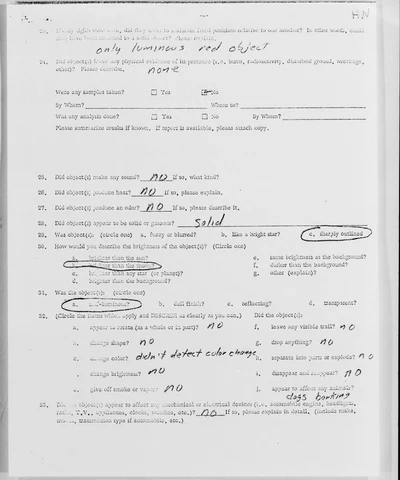 HN
23. If any lights were seen, did they seem to maintain fixed positions relative to one another? In other words, could
they have been attached to a solid object? Please explain.
only luminous red object
24. Did object(s) leave any physical evidence of its presence (i.e. burns, radioactivity, disturbed ground, wreckage,
other)? Please describe. none
Were any samples taken? Yes No
By Whom? Where to?
Was any analysis done? Yes No By Whom?
Please summarize results if known. If report is available, please attach copy.
25. Did object(s) make any sound? NO If so, what kind?
26. Did object(s) produce heat? NO If so, please explain.
27. Did object(s) produce an odor? NO If so, please describe it.
28. Did object(s) appear to be solid or gaseous? solid
29. Was object(s): (circle one) a. fuzzy or blurred? b. like a bright star? c. sharply outlined
30. How would you describe the brightness of the object(s)? (Circle one)
a. brighter than the sun? e. same brightness as the background?
b. brighter than the moon? f. darker than the background?
c. brighter than any star (or planet)? g. other (explain)?
d. brighter than the background?
31. Was the object(s): (circle one)
a. self-luminous? b. dull finish? c. reflecting? d. transparent?
32. (Circle the items which apply and DESCRIBE as clearly as you can.) Did the object(s):
a. appear to rotate (as a whole or in part) NO f. leave any visible trail? NO
b. change shape? NO g. drop anything? NO
c. change color? didn't detect color change h. separate into parts or explode? NO
d. change brightness? NO i. disappear and reappear? NO
e. give off smoke or vapor? NO j. appear to affect any animals?
dogs barking
33. Did the object(s) appear to affect any mechanical or electrical devices (i.e., automobile engine, headlights,
radio, T.V., appliances, clocks, watches, etc.)? NO If so, please explain in detail. (Include make,
model, transmission type if automobile, etc.)